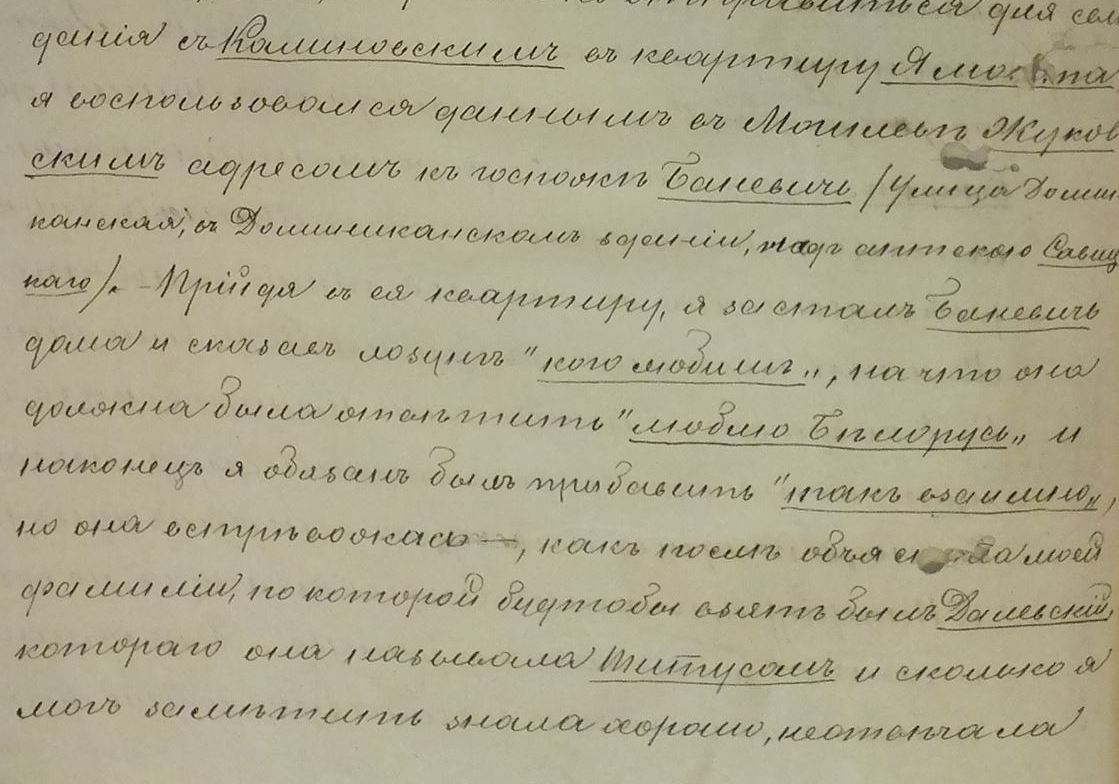 отправиться для сви
данія съ Калиновскимъ въ квартиру Ямонта
я воспользовался даннымъ въ Могилевѣ Жуков
скимъ адресомъ къ госпожѣ Баневичъ /Улица Домин
иканская, въ Доминиканскомъ зданіи, надъ аптекою Савиц
каго/. – Прійдя въ ея квартиру, я засталъ Баневичъ
дома и сказавъ лозунгъ "кого любишь", на что она
должна была отвѣтить "люблю Бѣлорусь" и
наконецъ я обязанъ былъ прибавить "такъ взаимно",
но она встрѣвожась –, какъ послѣ объяснила моей
фамиліи, по которой будтобы взятъ былъ Далевскій,
котораго она называла Титусомъ и сколько я
могъ замѣтить знала хорошо, неотвѣчала